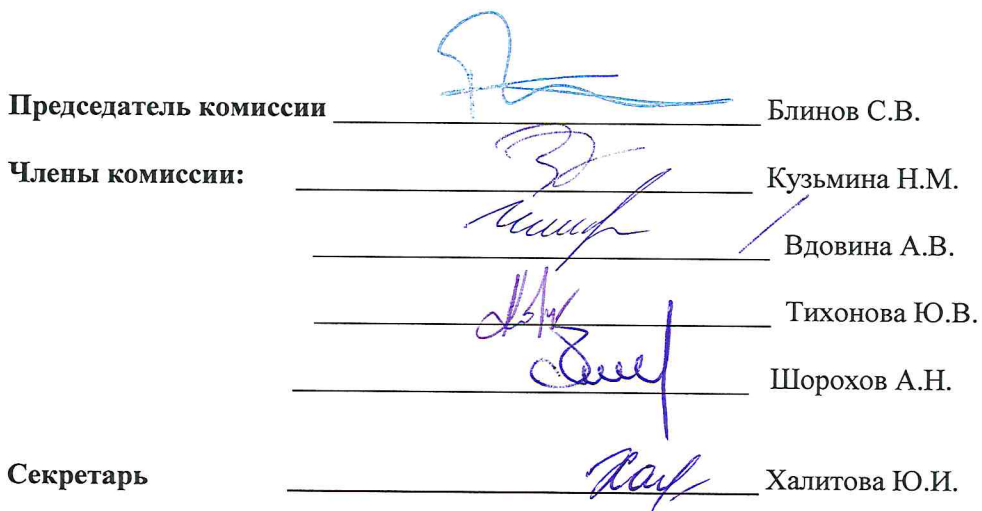 Председатель комиссии Блинов С.В.
Члены комиссии: Кузьмина Н.М.
Вдовина А.В.
Тихонова Ю.В.
Шорохов А.Н.
Секретарь Халитова Ю.И.